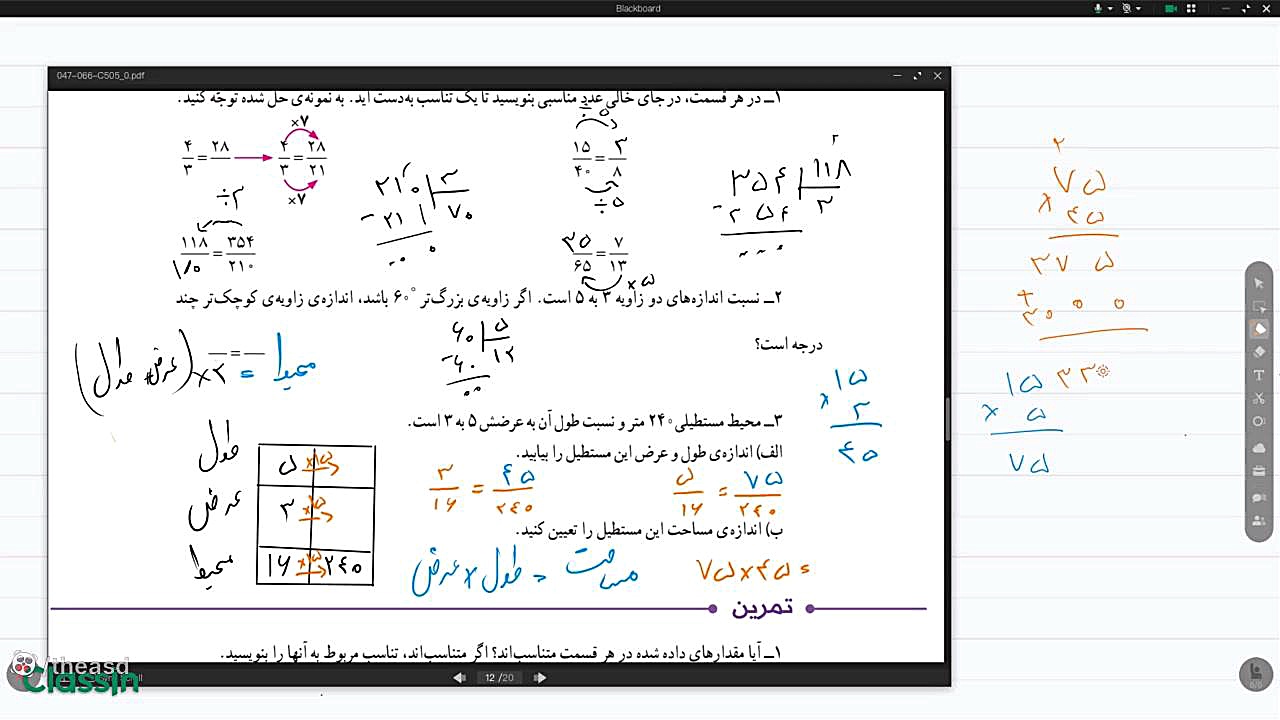 Blackboard
047-066-C505_0.pdf
۱ــ در هر قسمت، در جای خالی عدد مناسبی بنویسید تا یک تناسب به‌دست آید. به نمونه‌ی حل شده توجّه کنید.
۴/۳ = ۲۸/ → ۴/۳ = ۲۸/۲۱
×۷
×۷
÷۵
۱۵/۴۰ = ۳/۸
÷۵
÷۳
۱۱۸/ = ۳۵۴/۲۱۰
۲۱۰ ۳
۷۰
۳۵/۶۵ = ۷/۱۳
×۵
۳۵۴ ۱۱۸
۳
۲ــ نسبت اندازه‌های دو زاویه ۳ به ۵ است. اگر زاویه‌ی بزرگ‌تر ۶۰° باشد، اندازه‌ی زاویه‌ی کوچک‌تر چند
درجه است؟
۶۰ ۵
۱۲
-۶۰
۰۰
(طول + عرض) ×۲ = محیط
۳ــ محیط مستطیلی ۲۴۰ متر و نسبت طول آن به عرضش ۵ به ۳ است.
الف) اندازه‌ی طول و عرض این مستطیل را بیابید.
۳/۱۶ = ۴۵/۲۴۰
۵/۱۶ = ۷۵/۲۴۰
ب) اندازه‌ی مساحت این مستطیل را تعیین کنید.
طول ۵ ×۱۵
عرض ۳ ×۱۵
محیط ۱۶ ×۱۵ ۲۴۰
مساحت = طول × عرض
۷۵×۴۵=
۱۵
× ۳
۴۵
۲
۷۵
× ۴۵
۳۷۵
+ ۳۰۰۰
۳۳
۱۵
× ۵
۷۵
تمرین
۱ــ آیا مقدارهای داده شده در هر قسمت متناسب‌اند؟ اگر متناسب‌اند، تناسب مربوط به آنها را بنویسید.
12 / 20
/theasd
ClassIn